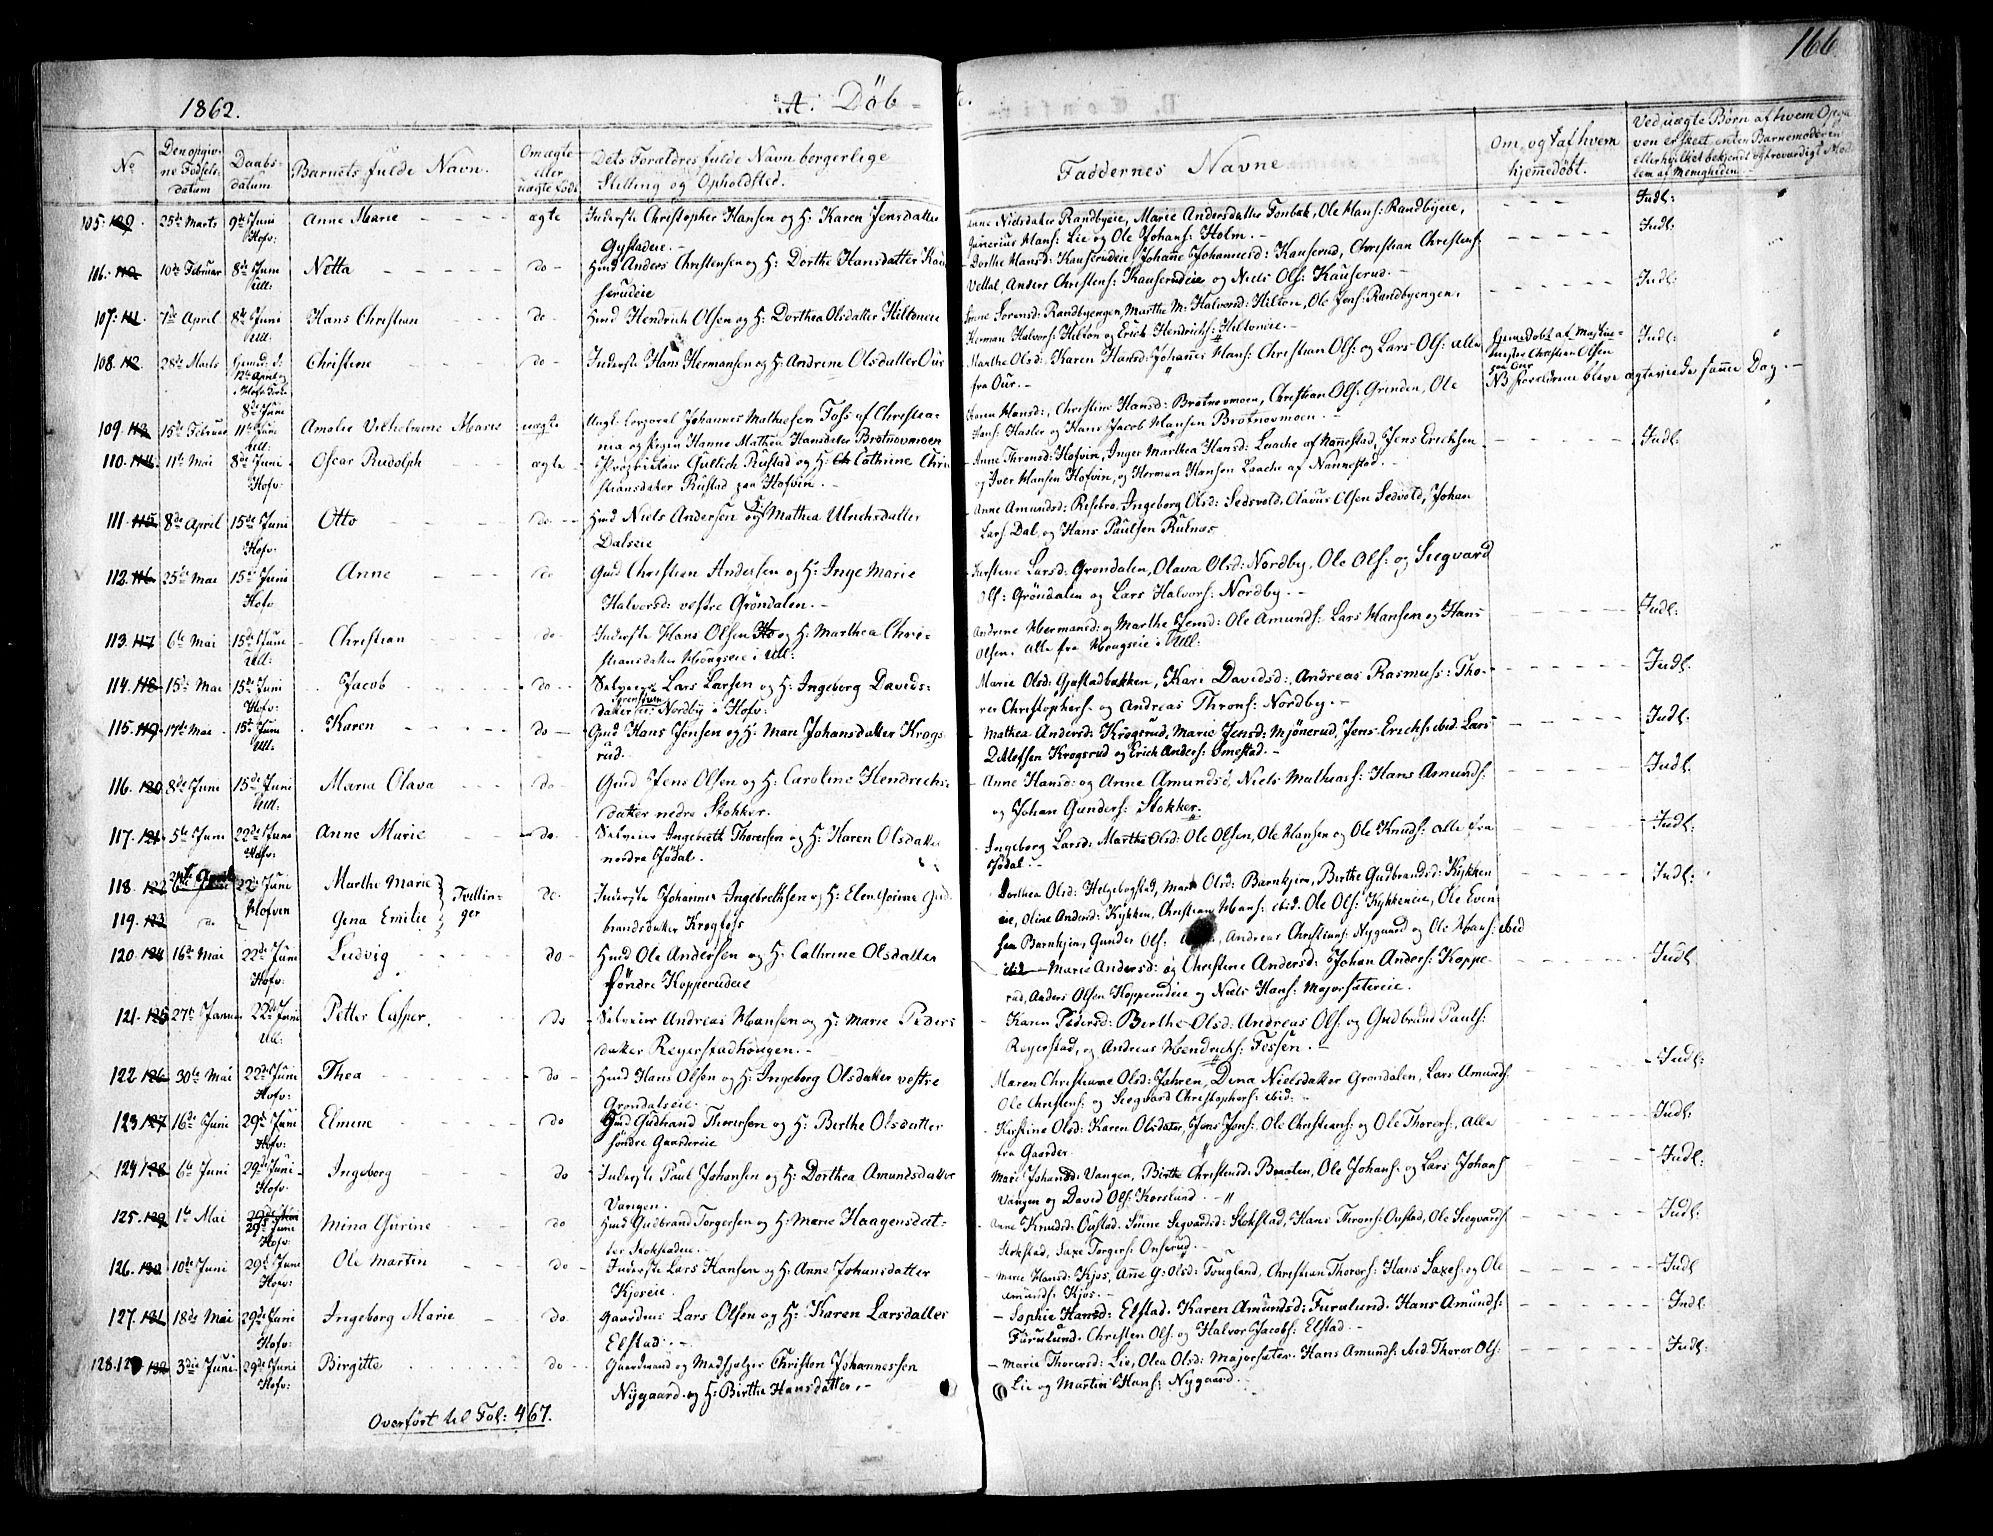 166
1862.
A. Döb-te.
No
Den opgivne Fødsels-datum
Daabs-datum
Barnets fulde Navn.
Om ægte eller uægte født
Dets Forældres fulde Navn borgerlige
Stilling og Opholdsted.
Faddernes Navne
Om, og af hvem
hjemmedøbt.
Ved uægte Børn af hvem Opgi-
ven er skeet, enten Barnemoderen
eller hvilket bekjendt og troværdigt Med-
lem af Menigheden
105. 109. 25de Marts 9de Juni Hofv: Anne Marie ægte Inderste Christopher Hansen og H: Karen Jensdatter
Gystadeie.
Anne Nielsdatter Randbyeie, Marie Andersdatter Fonbæk, Ole Hans: Randbyeie,
Hans: Lie og Ole Johans: Holm. Indl:
106. 110 10de Februar 8de Juni Ull: Netta do Hmd Anders Christensen og H: Dorthe Hansdatter Kau-
serudeie
Dorthe Hansd: Kauserudeie, Johanne Johannesd: Kauserud, Christian Christens:
Anders Christens: Kauserudeie og Niels Ols: Kauserud. Indl:
107. 111. 7de April 8de Juni Ull: Hans Christian do Hmd Hendrich Olsen og H: Dorthea Olsdatter Hiltoneie
Randbyengen, Marthe M: Halvorsd: Hilton, Ole Jens: Randbyengen,
Herman Halvors: Hilton og Erich Hendrichs: Hiltoneie. Indl:
108. 112 28de Marts Christine do Inderste Hans Hermansen og H: Andrine Olsdatter Our
Marthe Olsd: Karen Hansd: Johannes Hans: Christian Ols: og Lars Ols: alle
fra Our.
Hjemmedøbt af Maskin-
mester Christian Olsen
paa Our
NB Forældrene bleve ægteviede samme Dag. Indl:
109. 113 15de Februar 11te Juni Ull: Amalie Vilhelmine Marie uægte Ungk. Corporal Johannes Mathiesen Foss af Christia-
nia og Pigen Hanne Mathea Hansdatter Brotnovmoen
Karen Hansd:, Christine Hansd: Brotnovmoen, Christian Ols: Grinden, Ole
Hans: Hasler og Hans Jacob Hansen Brotnovmoen.
110. 114. 11te Mai 8de Juni Hofv: Oscar Rudolph ægte Gullich Rustad og H: Cathrine Chri-
stiansdatter Rustad paa Hofvin.
Anne Thronsd: Hofvin, Inger Marthea Hansd: Laache af Nannestad, Jens Ericksen
og Iver Hansen Hofvin, og Herman Hansen Laache af Nannestad. Indl:
111. 115. 8de April 15de Juni Hofv: Otto do Hmd Niels Andersen og H: Mathea Ulrichsdatter
Dalseie
Anne Amundsd: Risebro, Ingeborg Olsd: Sedsvold, Olavus Olsen Sedvold, Johan
Lars: Dal, og Hans Paulsen Rulnæs
112. 116. 25de Mai 15de Juni Hofv Anne do Gmd Christian Andersen og H: Inge Marie
Halvorsd: vestre Gröndalen.
Kirstine Larsd: Grondalen, Olava Olsd: Nordby, Ole Ols: og Siegvard
Ols: Gröndalen og Lars Halvors: Nordby. Indl:
113. 117 6te Mai 15de Juni Ull: Christian do Inderste Hans Olsen og H: Marthea Chri-
stiansdatter Hougseie i Ull:
Andrine Hermansd: og Marthe Jensd: Ole Amunds: Lars Hansen og Hans
Olsen, Alle fra Hougseie i Ull: Indl:
114. 118 15de Mai 15de Juni Hofv: Jacob do Selveier Lars Larsen og H: Ingeborg Davids-
datter Nordby i Hofv:
Marie Olsd: Gystadbakken, Kari Davidsd:, Andreas Rasmuss: Tho-
rer Christophers: og Andreas Throns: Nordby. Indl.
115. 119. 17de Mai 15de Juni Ull. Karen do Gmd Hans Jensen og H: Mari Johansdatter Krogs-
rud.
Mathea Andersd: Krogsrud, Marie Jensd: Mjönerud, Jens Erichs: ibid. Lars
Ditlefsen Krogsrud og Erich Anders: Omestad. Indl:
116. 120 8de Juni 15de Juni Ull: Maria Olava do Gmd Jens Olsen og H: Caroline Hendrichs-
datter nedre Stokker.
Anne Hansd: og Anne Amundsd, Niels Mathias: Hans Amunds:
og Johan Gunders: Stokker. Indl:
117. 121. 5te Juni 22de Juni Hofv: Anne Marie do Selveier Ingebreth Thoresen og H: Karen Olsdatter
nordre Jödal.
Ingeborg Larsd: Marthe Olsd: Ole Olsen, Ole Hansen og Ole Knuds: alle fra
Jödal. Indl:
118. 122 22de Juni Hofven Marthe Marie
119. 123 do Gena Emilie
Tvillin-
ger
do. Inderste Johannes Ingebrethsen og H: Elen Gorine Gud-
brandsdatter Krogfoss
Dorthea Olsd: Helgebogstad, Mari Olsd: Barnkjern, Birthe Gudbrandsd: Kykken
eie, Oline Andersd: Kykken, Christian Hans: ibid. Ole Ols: Kykkeneie, Ole Even-
sen Barnkjern, Gunder Ols: Andreas Christians: Nygaard og Ole Hans: ibid Indl:
120. 124 16de Mai 22de Juni Hofv: Ludvig do Hmd Ole Andersen og H: Cathrine Olsdatter
søndre Kopperudeie
Marie Andersd: og Christine Andersd: Johan Anders: Koppe-
rud, Anders Olsen Kopperudeie og Niels Hans: Majorsætereie. Indl.
121. 125 22de Juni Ull: Petter Casper. do Selveier Andreas Hansen og H: Marie Peders-
datter Reyerstadhougen.
Karen Pedersd: Berthe Olsd: Andreas Ols: og Gudbrand Pauls:
Reyerstad, og Andreas Hendrichs: Fossen.
122 126 30te Mai 22de Juni Hofv: Thea do Hmd Hans Olsen og H: Ingeborg Olsdatter vestre
Grondalseie.
Maren Christiane Olsd: Jahren, Dina Nielsdatter Grondalen, Lars Amunds:
Ole Christens: og Siegvard Christophers: ibid: Indl:
123 127 16de Juni 29de Juni Hofv: Elmine do Hmd Gudbrand Thoresen og H: Berthe Olsdatter
söndre Gaardereie
Kirstine Olsd: Karen Olsdatter, Jens Jens: Ole Christians: og Ole Thorers:, Alle
fra Gaarder Indl:
124 128 6te Juni 29de Juni Hofv: Ingeborg do Inderste Paul Johansen og H: Dorthea Amundsdatter
Vangen.
Mari Johansd: Vangen, Birthe Christensd: Braaten, Ole Johans: og Lars Johans
Vangen og David Ols: Korslund. Indl:
125. 129 1te Mai 29de Juni Hofv: Mina Gurine do Hmd Gudbrand Torgersen og H: Marie Haagensdat-
ter Stokstadeie.
Anne Knudsd: Oustad. Sinne Segvardsd: Stokstad, Hans Throns: Oustad, Ole Siegvards:
Stokstad, Saxe Torgers: Onsrud. Indl:
126. 130 10de Juni 29de Juni Hofv: Ole Martin do Inderste Lars Hansen og H: Anne Johansdatter
Kjoseie.
Marie Hansd: Kjos, Anne G: Olsd: Tougland, Christian Thorers: Hans Saxes: og Ole
Amunds: Kjos. Indl
127. 131 18de Mai 29de Juni Hofv: Ingeborg Marie do. Gaardms Lars Olsen og H: Karen Larsdatter
Elstad.
Sophie Hansd: Elstad. Karen Amundsd: Furulund. Hans Amunds:
Furulund. Christen Ols: og Halvor Jacobs: Elstad. Indl:
128. 132 3die Juni 29de Juni Hofv: Birgitte do. Gaardmand og Medhjelper Christen Johannessen
Nygaard. og H: Birthe Hansdatter.
Marie Thorersd: Lie, Olea Olsd: Majorsæter. Hans Amunds: ibid Thorer Ols:
Lie og Martin Hans: Nygaard. Indl:
Overfört til Fol: 467.